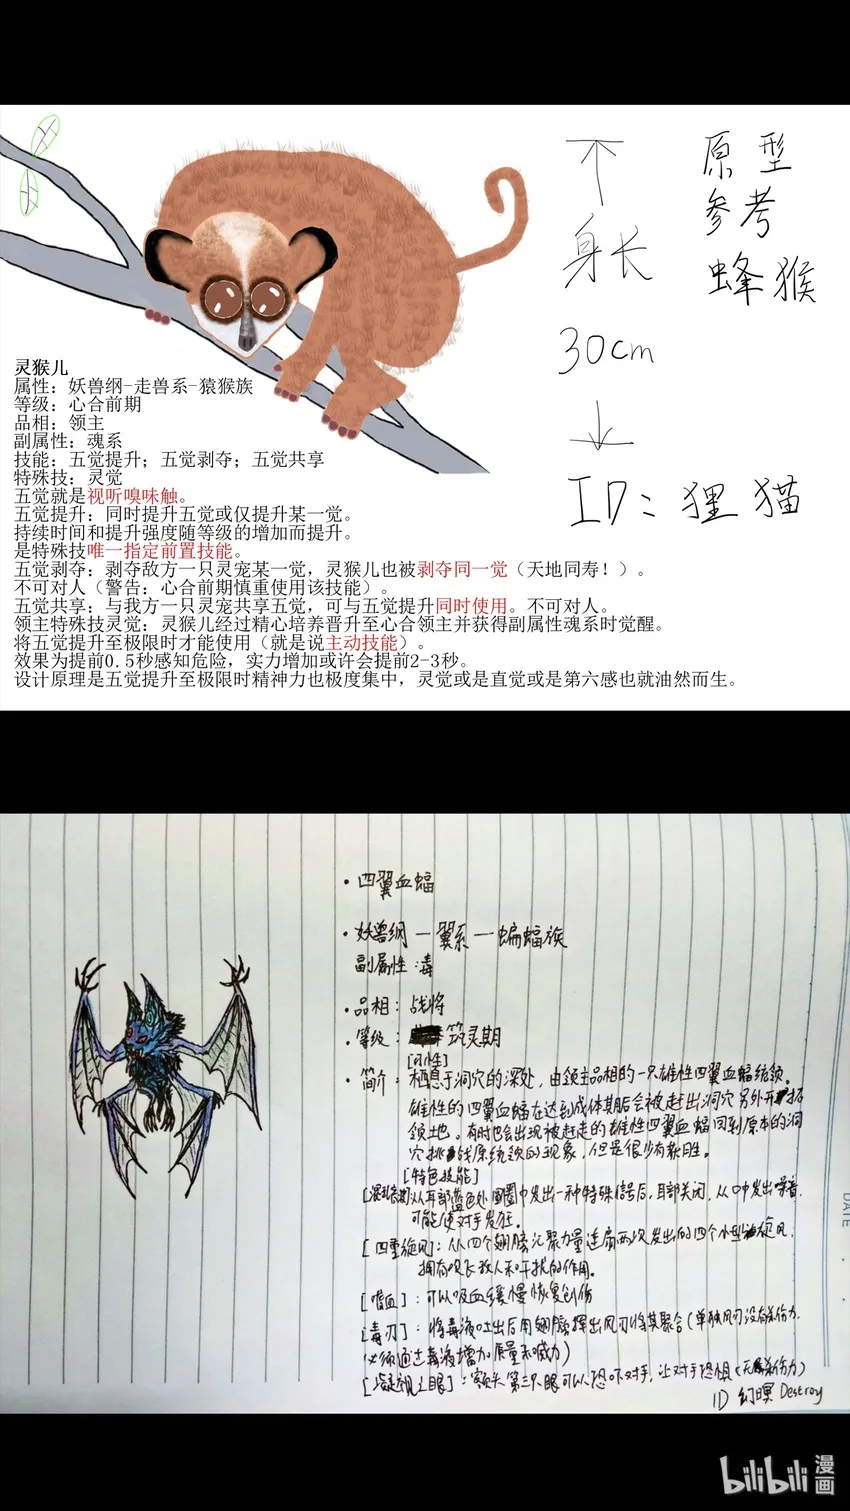 原型
参考
蜂猴
身长
30cm
ID：狸猫
灵猴儿
属性：妖兽纲-走兽系-猿猴族
等级：心合前期
品相：领主
副属性：魂系
技能：五觉提升；五觉剥夺；五觉共享
特殊技：灵觉
五觉就是视听嗅味触。
五觉提升：同时提升五觉或仅提升某一觉。
持续时间和提升强度随等级的增加而提升。
是特殊技唯一指定前置技能。
五觉剥夺：剥夺敌方一只灵宠某一觉，灵猴儿也被剥夺同一觉（天地同寿！）。
不可对人（警告：心合前期慎重使用该技能）。
五觉共享：与我方一只灵宠共享五觉，可与五觉提升同时使用。不可对人。
领主特殊技灵觉：灵猴儿经过精心培养晋升至心合领主并获得副属性魂系时觉醒。
将五觉提升至极限时才能使用（就是说主动技能）。
效果为提前0.5秒感知危险，实力增加或许会提前2-3秒。
设计原理是五觉提升至极限时精神力也极度集中，灵觉或是直觉或是第六感也就油然而生。
·四翼血蝠
·妖兽纲—翼系—蝙蝠族
副属性：毒
·品相：战将
·等级：筑灵期
[习性]
·简介：栖息于洞穴的深处，由领主品相的一只雄性四翼血蝠统领。
雄性的四翼血蝠在达到成体期后会被赶出洞穴另外开拓
领土地。有时也会出现被赶走的雄性四翼血蝠回到原本的洞
穴挑战原统领的现象，但是很少有获胜。
[特色技能]
从耳部蓝色处圆圈中发出一种特殊信号后，耳部关闭，从口中发出噪音，
可能使对手发狂。
[四重旋风]：从四个翅膀汇聚力量连扇两次发出的四个小型旋风，
拥有吹长敌人和干扰的作用。
[嗜血]：可以吸血缓慢恢复创伤
[毒刃]：将毒液吐出后用翅膀挥出风刃将其聚合（单独风刃没有杀伤力，
必须通过毒液增加质量和威力）
[凝视之眼]：额头第三只眼可以恐吓对手，让对手恐惧（无杀伤力）
ID 幻暝Destroy
DATE
bilibili漫画